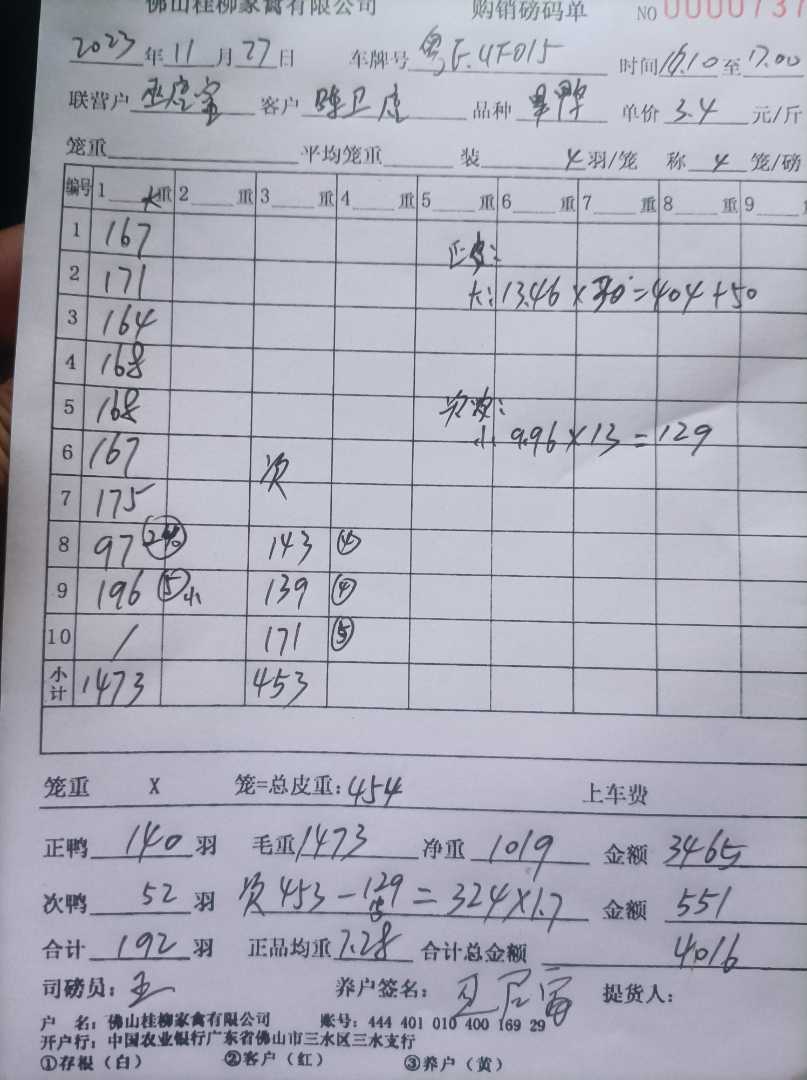 佛山桂柳家禽有限公司 购销磅码单 NO 0000737
2023年11月27日 车牌号 粤F.UF015 时间16.10至17.00
联营户 客户 陈卫 品种 单价 3.4 元/斤
笼重 平均笼重 装 4 羽/笼 称 4 笼/磅
编号 1 大重 2 重 3 重 4 重 5 重 6 重 7 重 8 重 9
1 167
正皮:
2 171 大: 13.46 × 30 = 404 + 50
3 164
4 168
5 168 次皮:
小 9.96 × 13 = 129
6 167 次
7 175
8 97 143 ④
9 196 ⑤小 139 ④
10 / 171 ⑤
小计 1473 453
笼重 X 笼=总皮重: 454 上车费
正鸭 140 羽 毛重 1473 净重 1019 金额 3465
次鸭 52 羽 次 453 - 129 = 324 × 1.7 金额 551
皮
合计 192 羽 正品均重 7.28 合计总金额 4016
司磅员: 养户签名: 提货人:
户 名: 佛山桂柳家禽有限公司 账号: 444 401 010 400 169 29
开户行: 中国农业银行广东省佛山市三水区三水支行
①存根(白) ②客户(红) ③养户(黄)